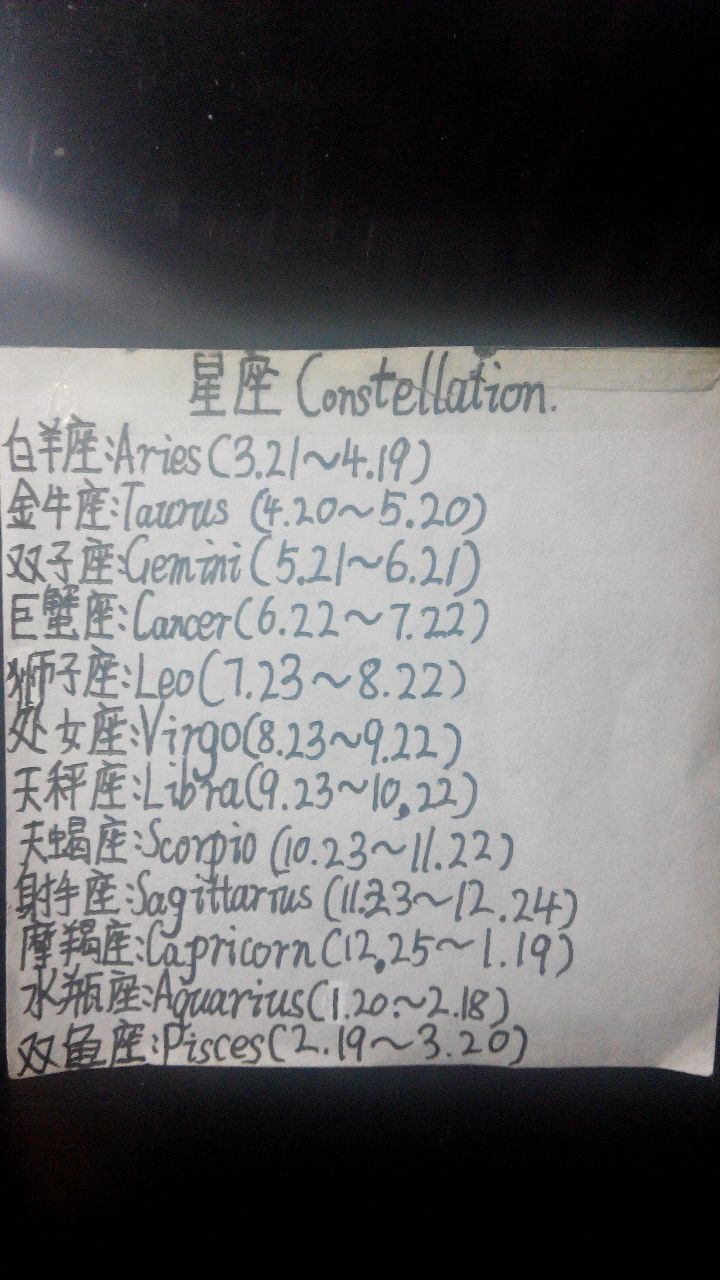 星座 Constellation.
白羊座:Aries(3.21~4.19)
金牛座:Taurus (4.20~5.20)
双子座:Gemini(5.21~6.21)
巨蟹座:Cancer(6.22~7.22)
狮子座:Leo(7.23~8.22)
处女座:Virgo(8.23~9.22)
天秤座:Libra(9.23~10,22)
天蝎座:Scorpio (10.23~11.22)
射手座:Sagittarius (11.23~12.24)
摩羯座:Capricorn(12,25~1.19)
水瓶座:Aquarius(1.20.~2.18)
双鱼座:Pisces(2.19~3.20)